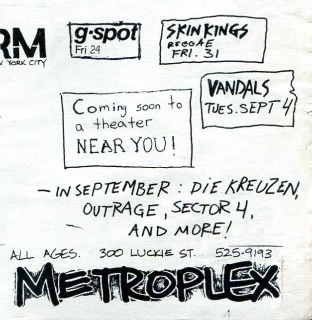 RM
NEW YORK CITY
g·spot
Fri 24
SKIN KINGS
REGGAE
FRI. 31
VANDALS
TUES. SEPT 4
Coming soon to
a theater
NEAR YOU!
– IN SEPTEMBER : DIE KREUZEN,
OUTRAGE, SECTOR 4,
AND MORE!
ALL AGES. 300 LUCKIE ST. 525-9193
METROPLEX